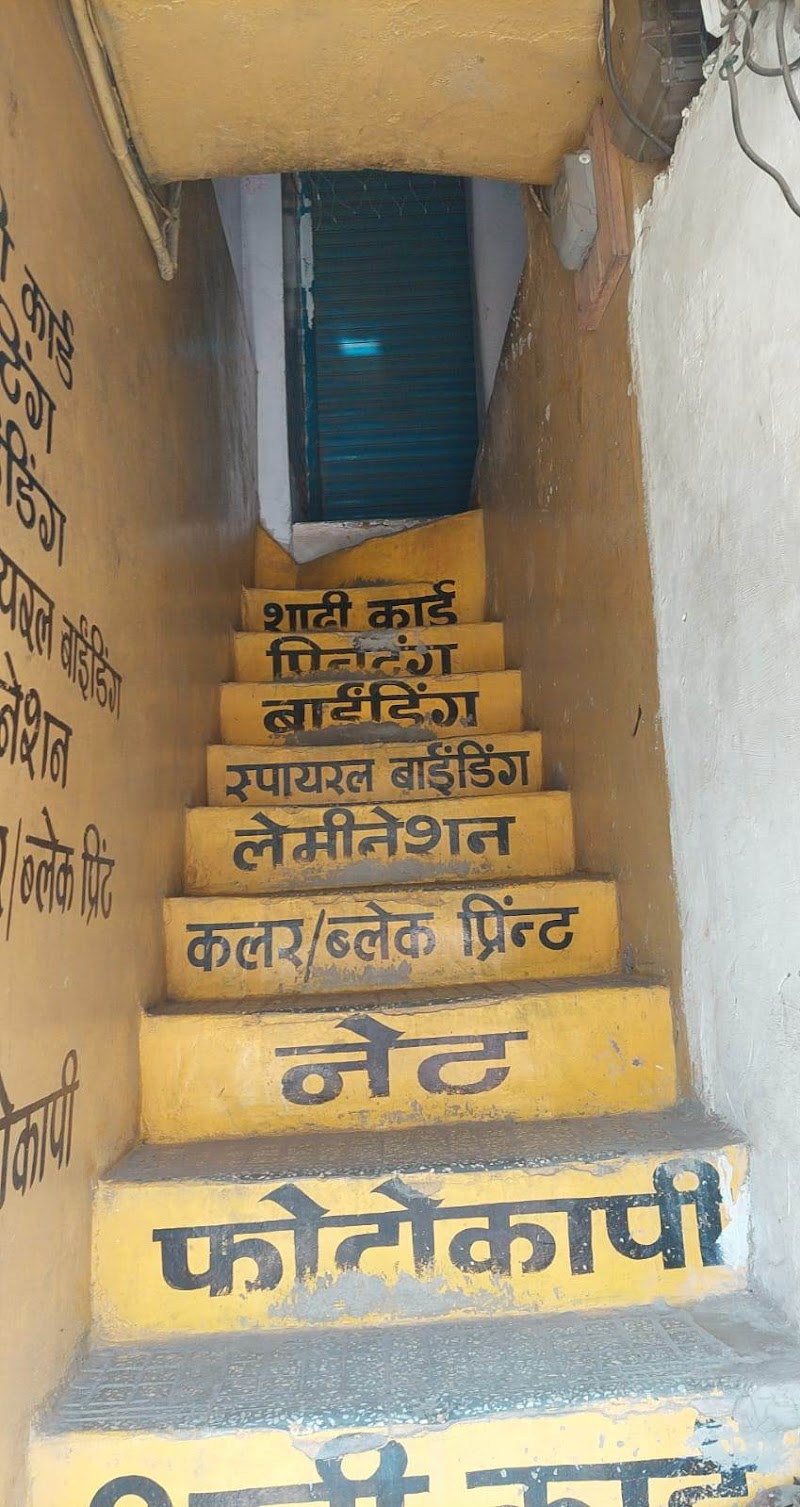 कार्ड
स्पायरल बाईंडिंग
/ब्लेक प्रिंट
शादी कार्ड
प्रिन्टिंग
बाईंडिंग
स्पायरल बाईंडिंग
लेमीनेशन
कलर/ब्लेक प्रिंन्ट
नेट
फोटोकापी